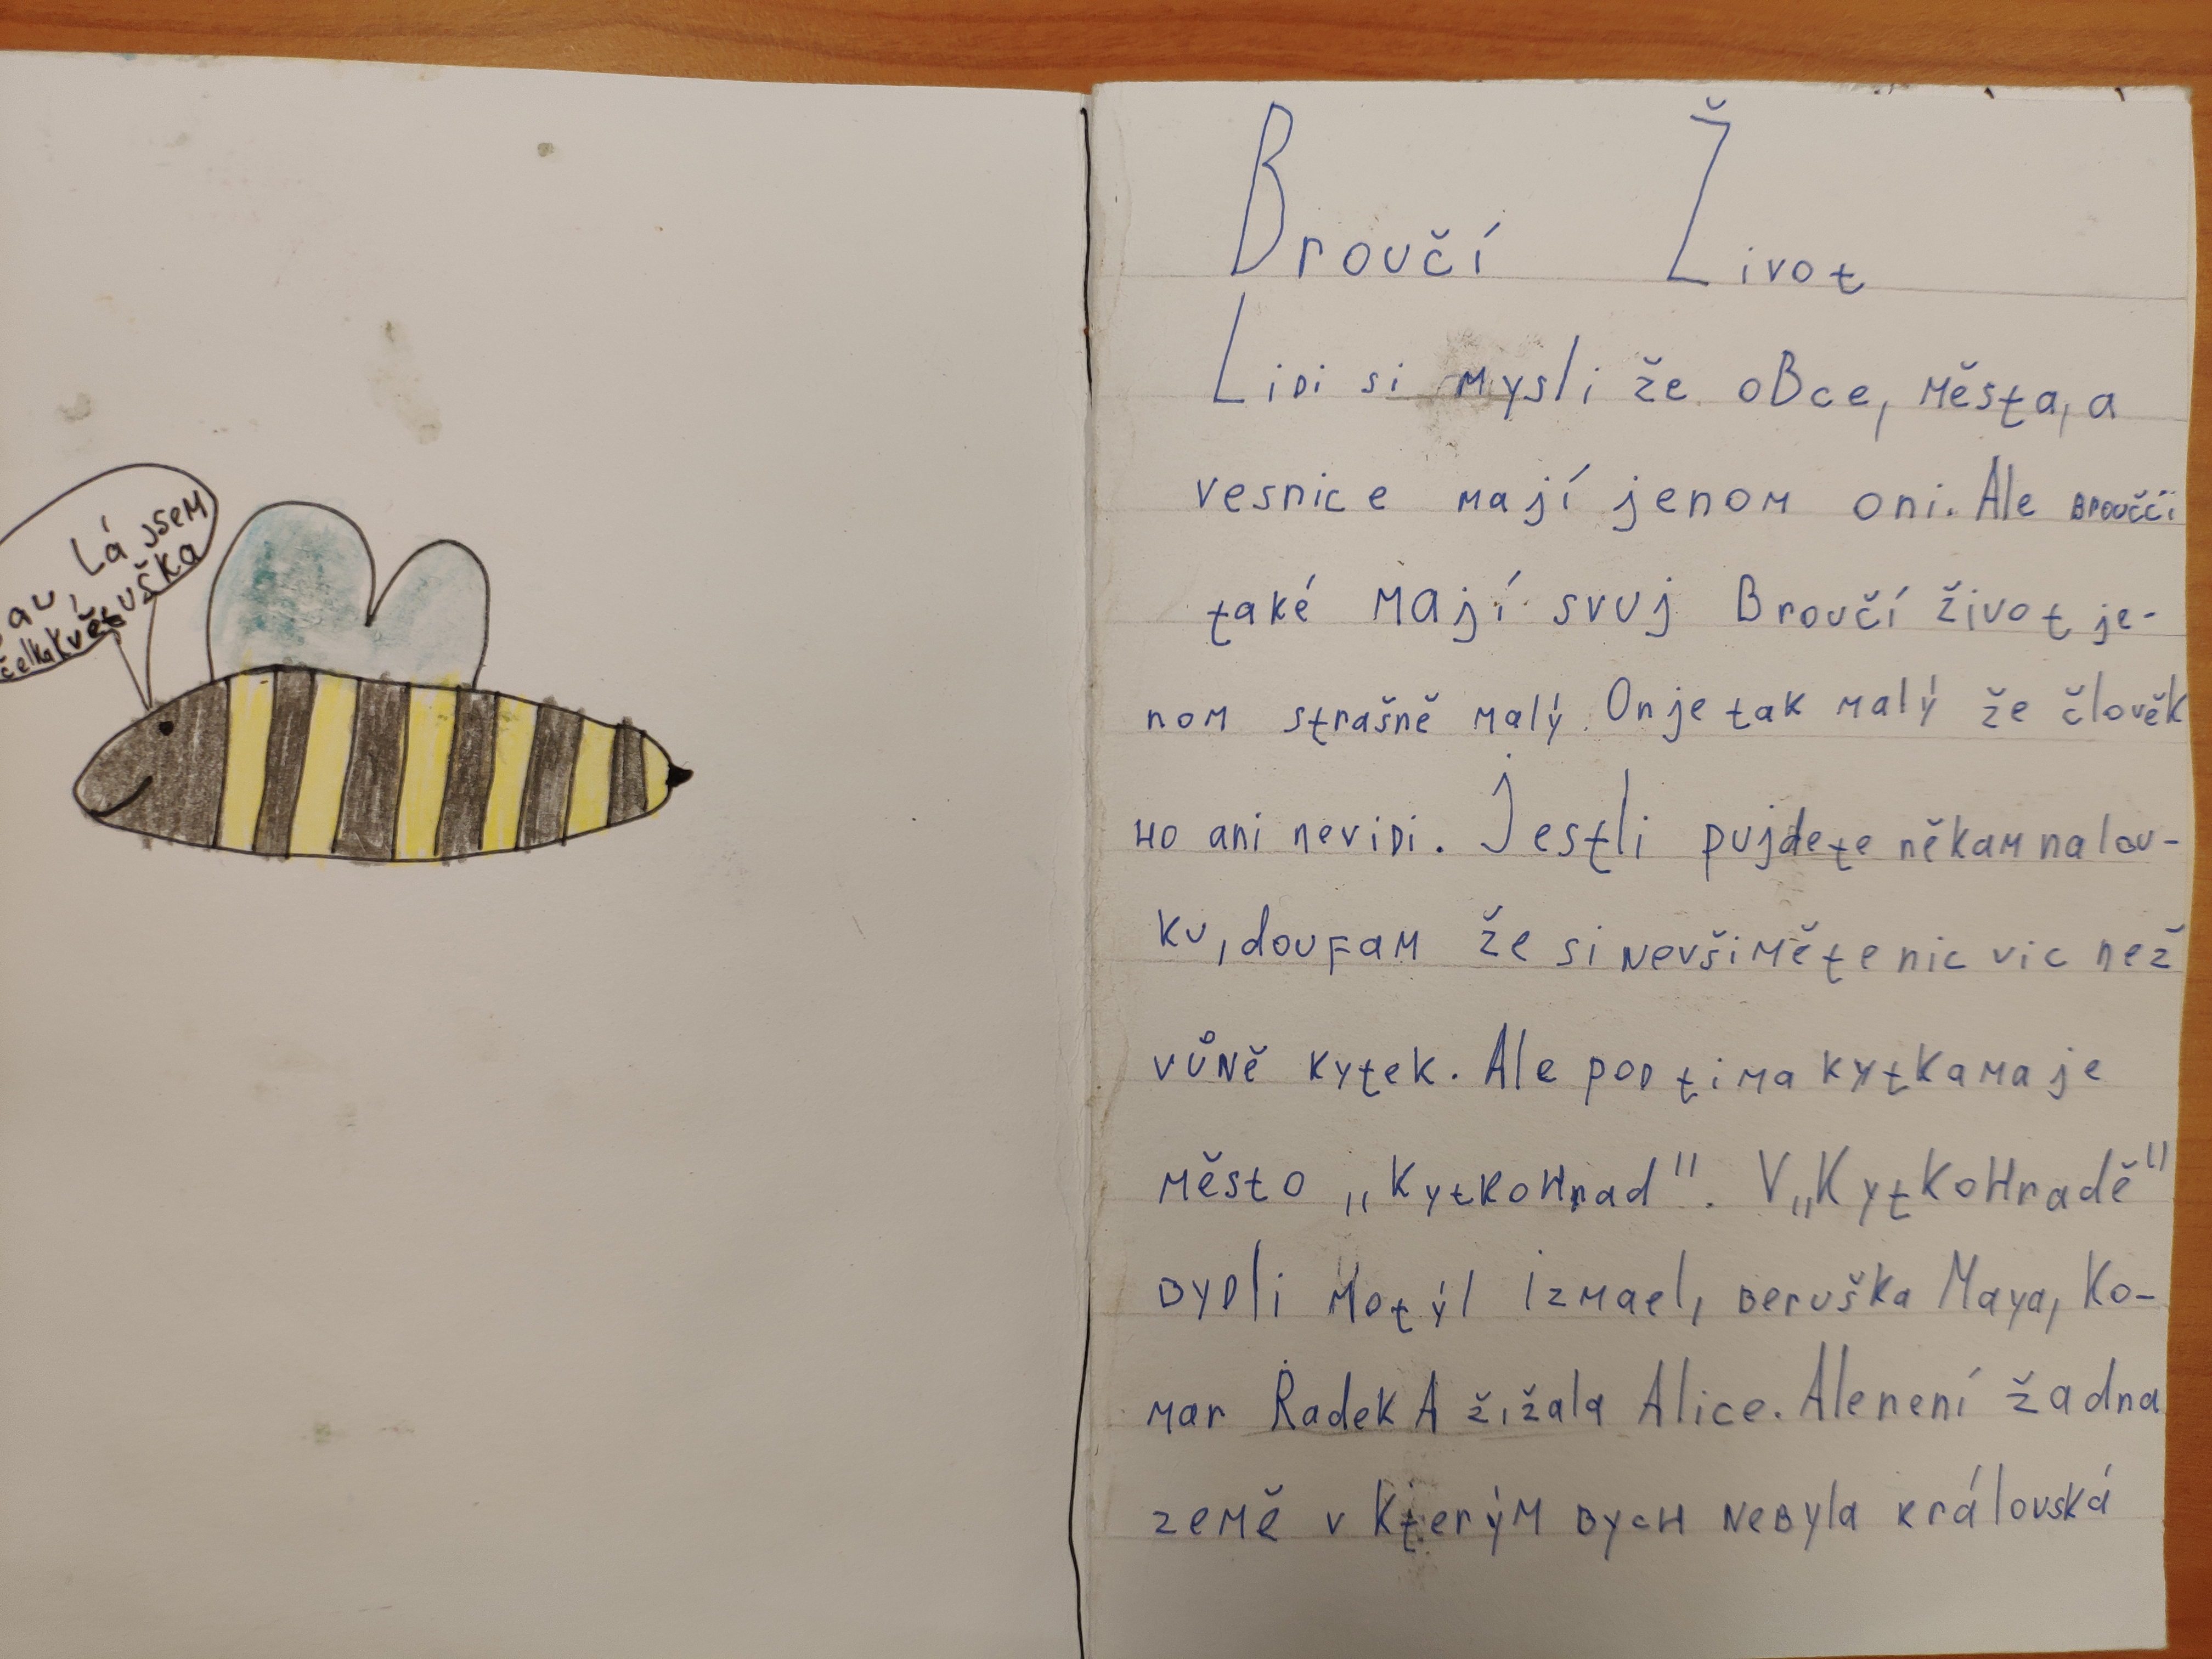 Lá jsem
květuška
Broučí Život
Lidi si mysli že oBce, města, a
vesnice mají jenom oni. Ale Broučči
také mají svuj Broučí život je-
nom strašně malý. On je tak malý že člověk
ho ani nevidi. Jestli pujdete někam na lou-
ku, doufam že si nevšiměte nic vic než
vůně kytek. Ale pod tima kytkama je
město „KytkoHrad". V „KytkoHradě"
bydli Motýl Izmael, beruška Maya, Ko-
mar Radek A žižala Alice. Ale není žadna
země v kterým bych nebyla královská